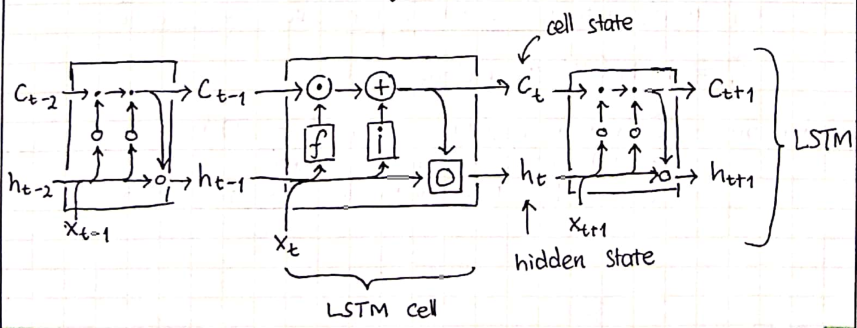 cell state
C_{t-2} C_{t-1} ⊙ + C_t C_{t+1}
f i LSTM
h_{t-2} h_{t-1} O h_t h_{t+1}
x_{t-1} x_t x_{t+1}
hidden state
LSTM cell